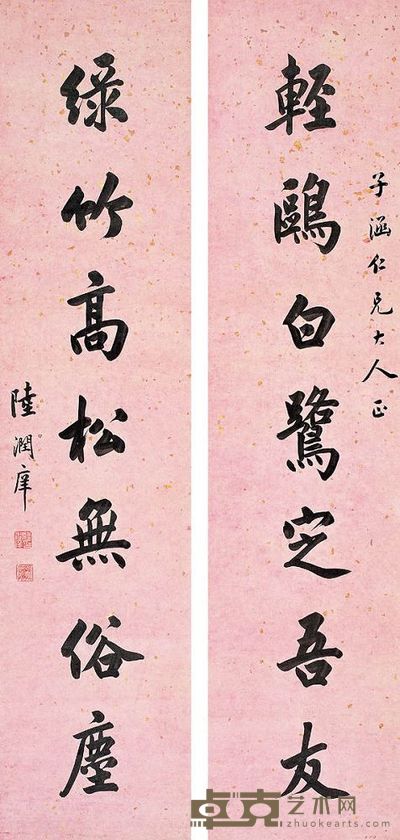 子涵仁兄大人正
輕鷗白鷺定吾友
綠竹高松無俗塵
陸潤庠
卓克艺术网
www.zhuokearts.com